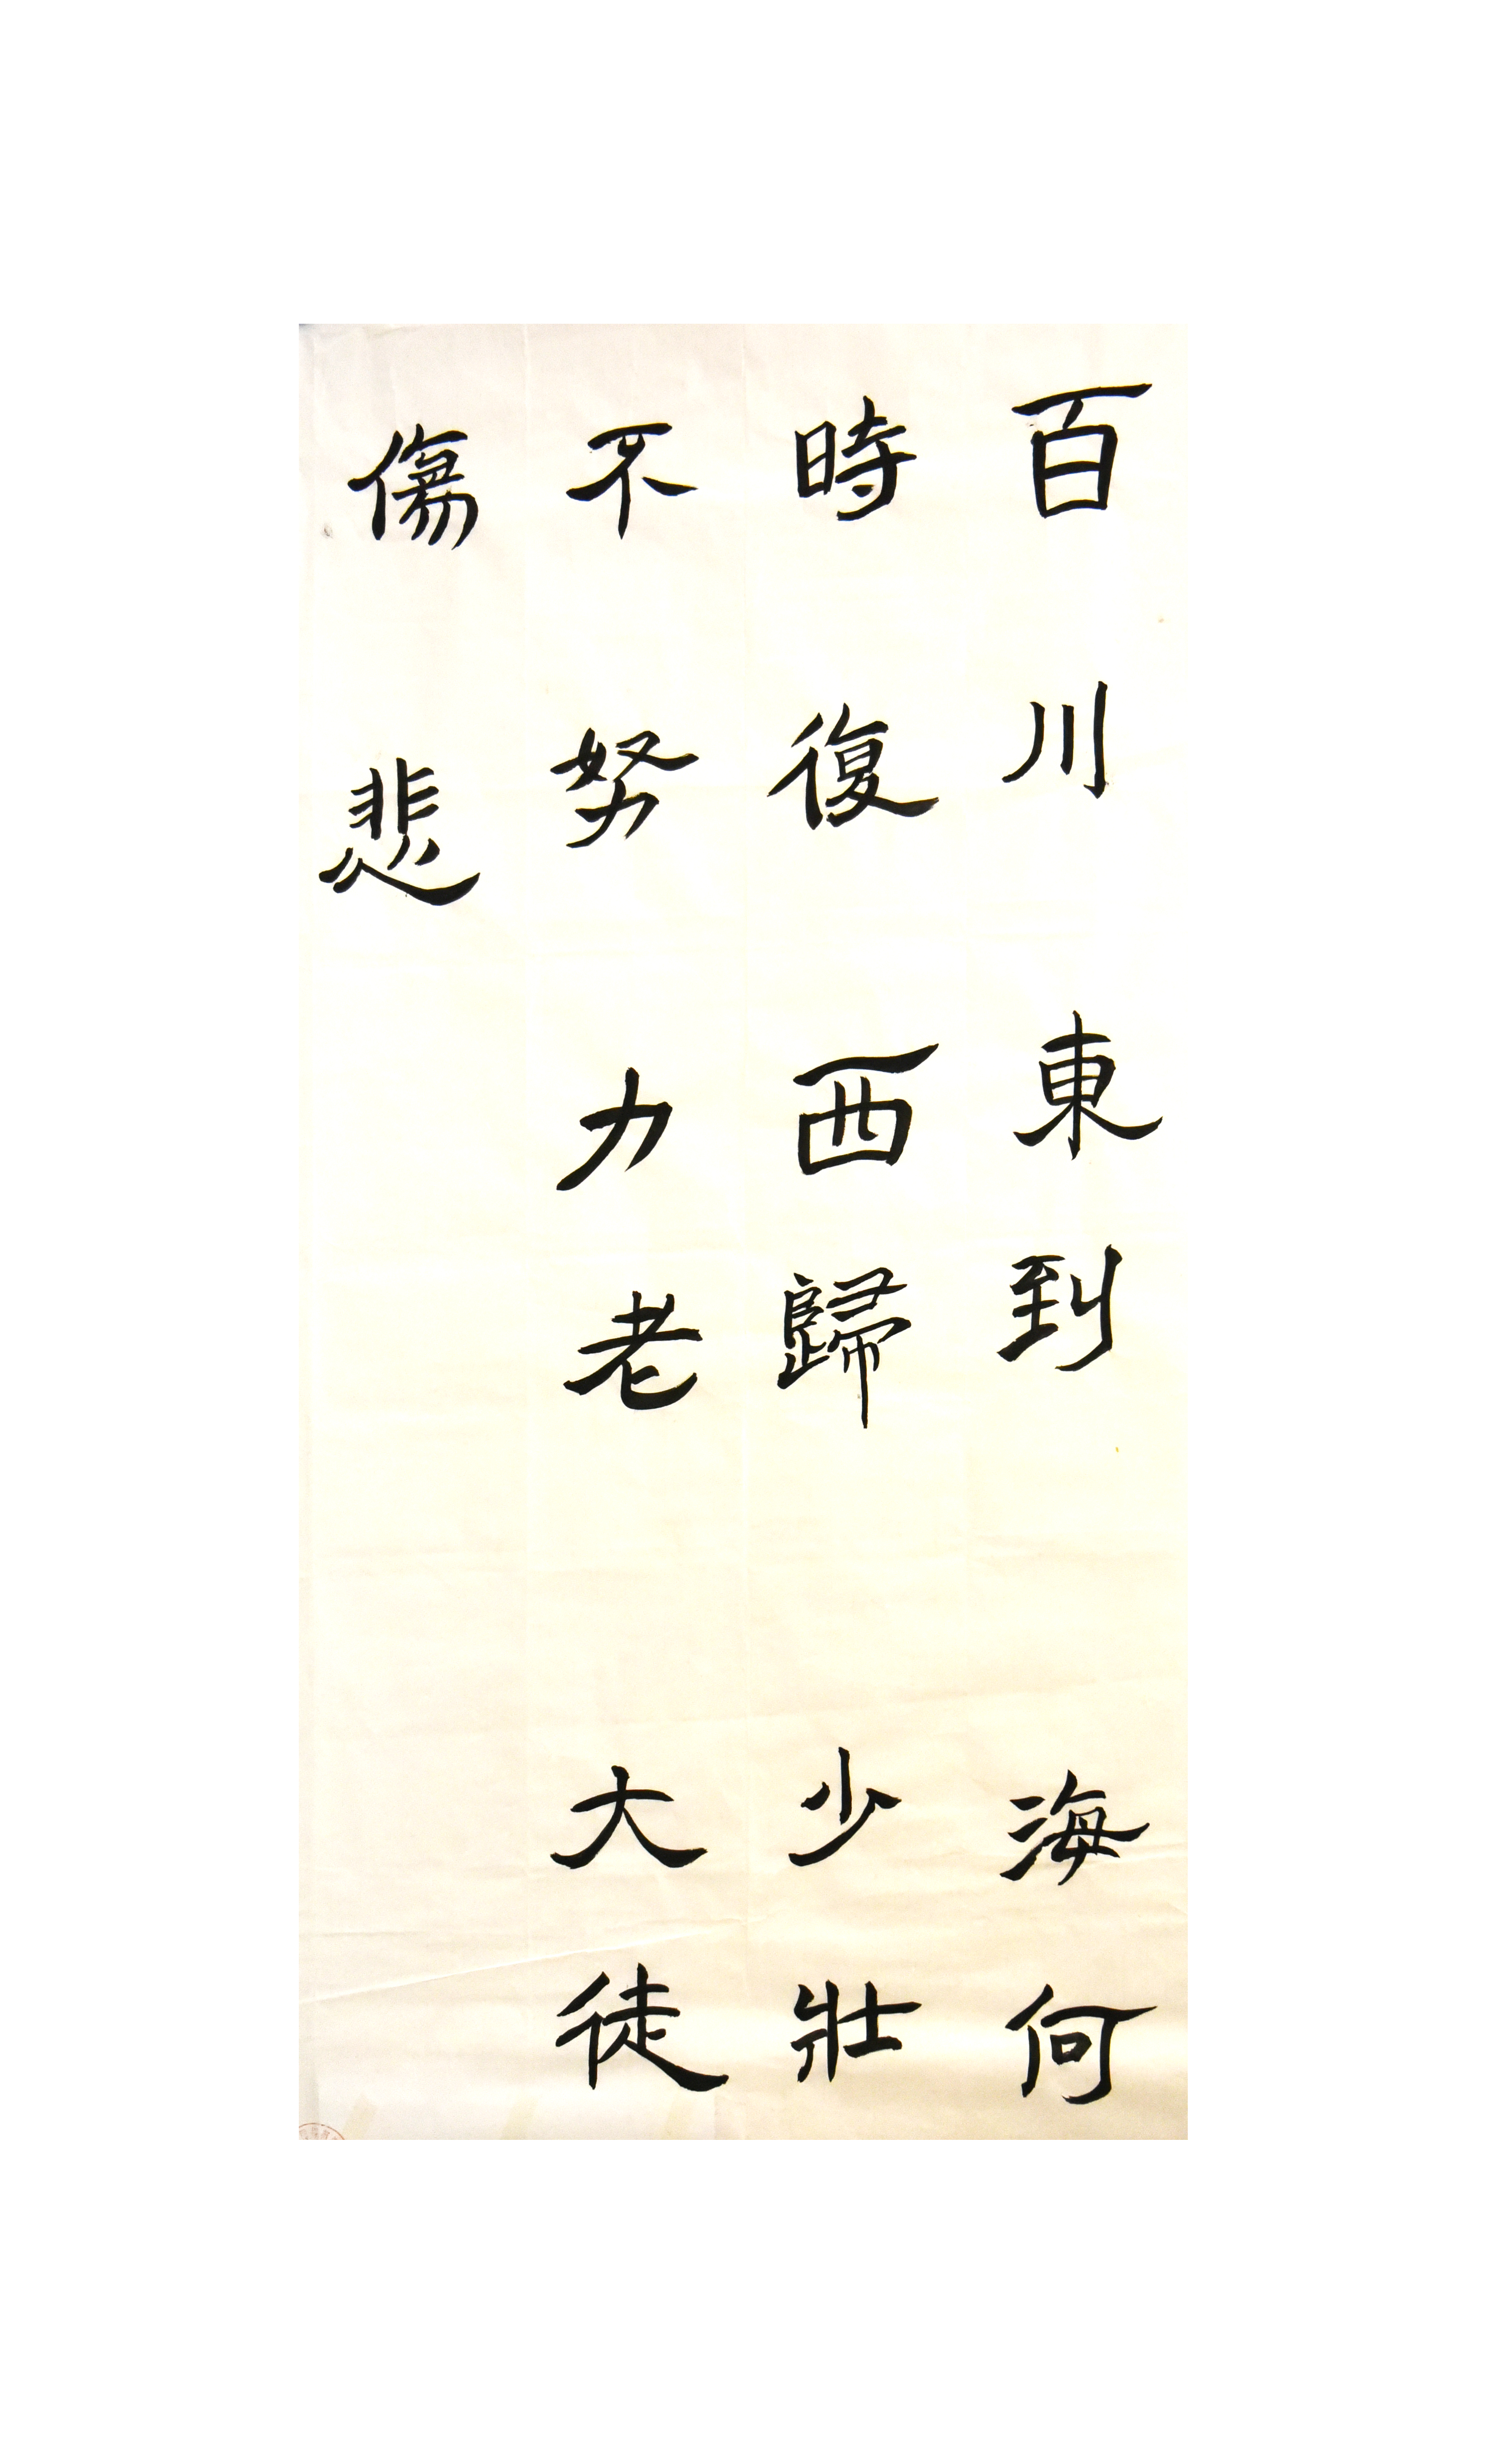 百川東到海何
時復西歸少壯
不努力老大徒
傷悲